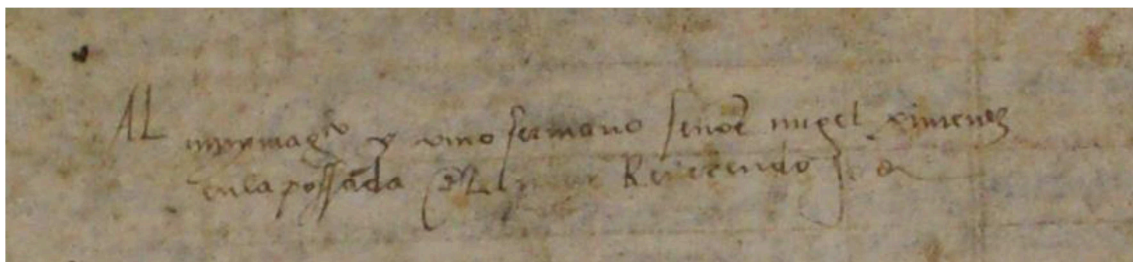 AL muy mag.co y como hermano señor miguel ximenez
en la possada del Reverendo